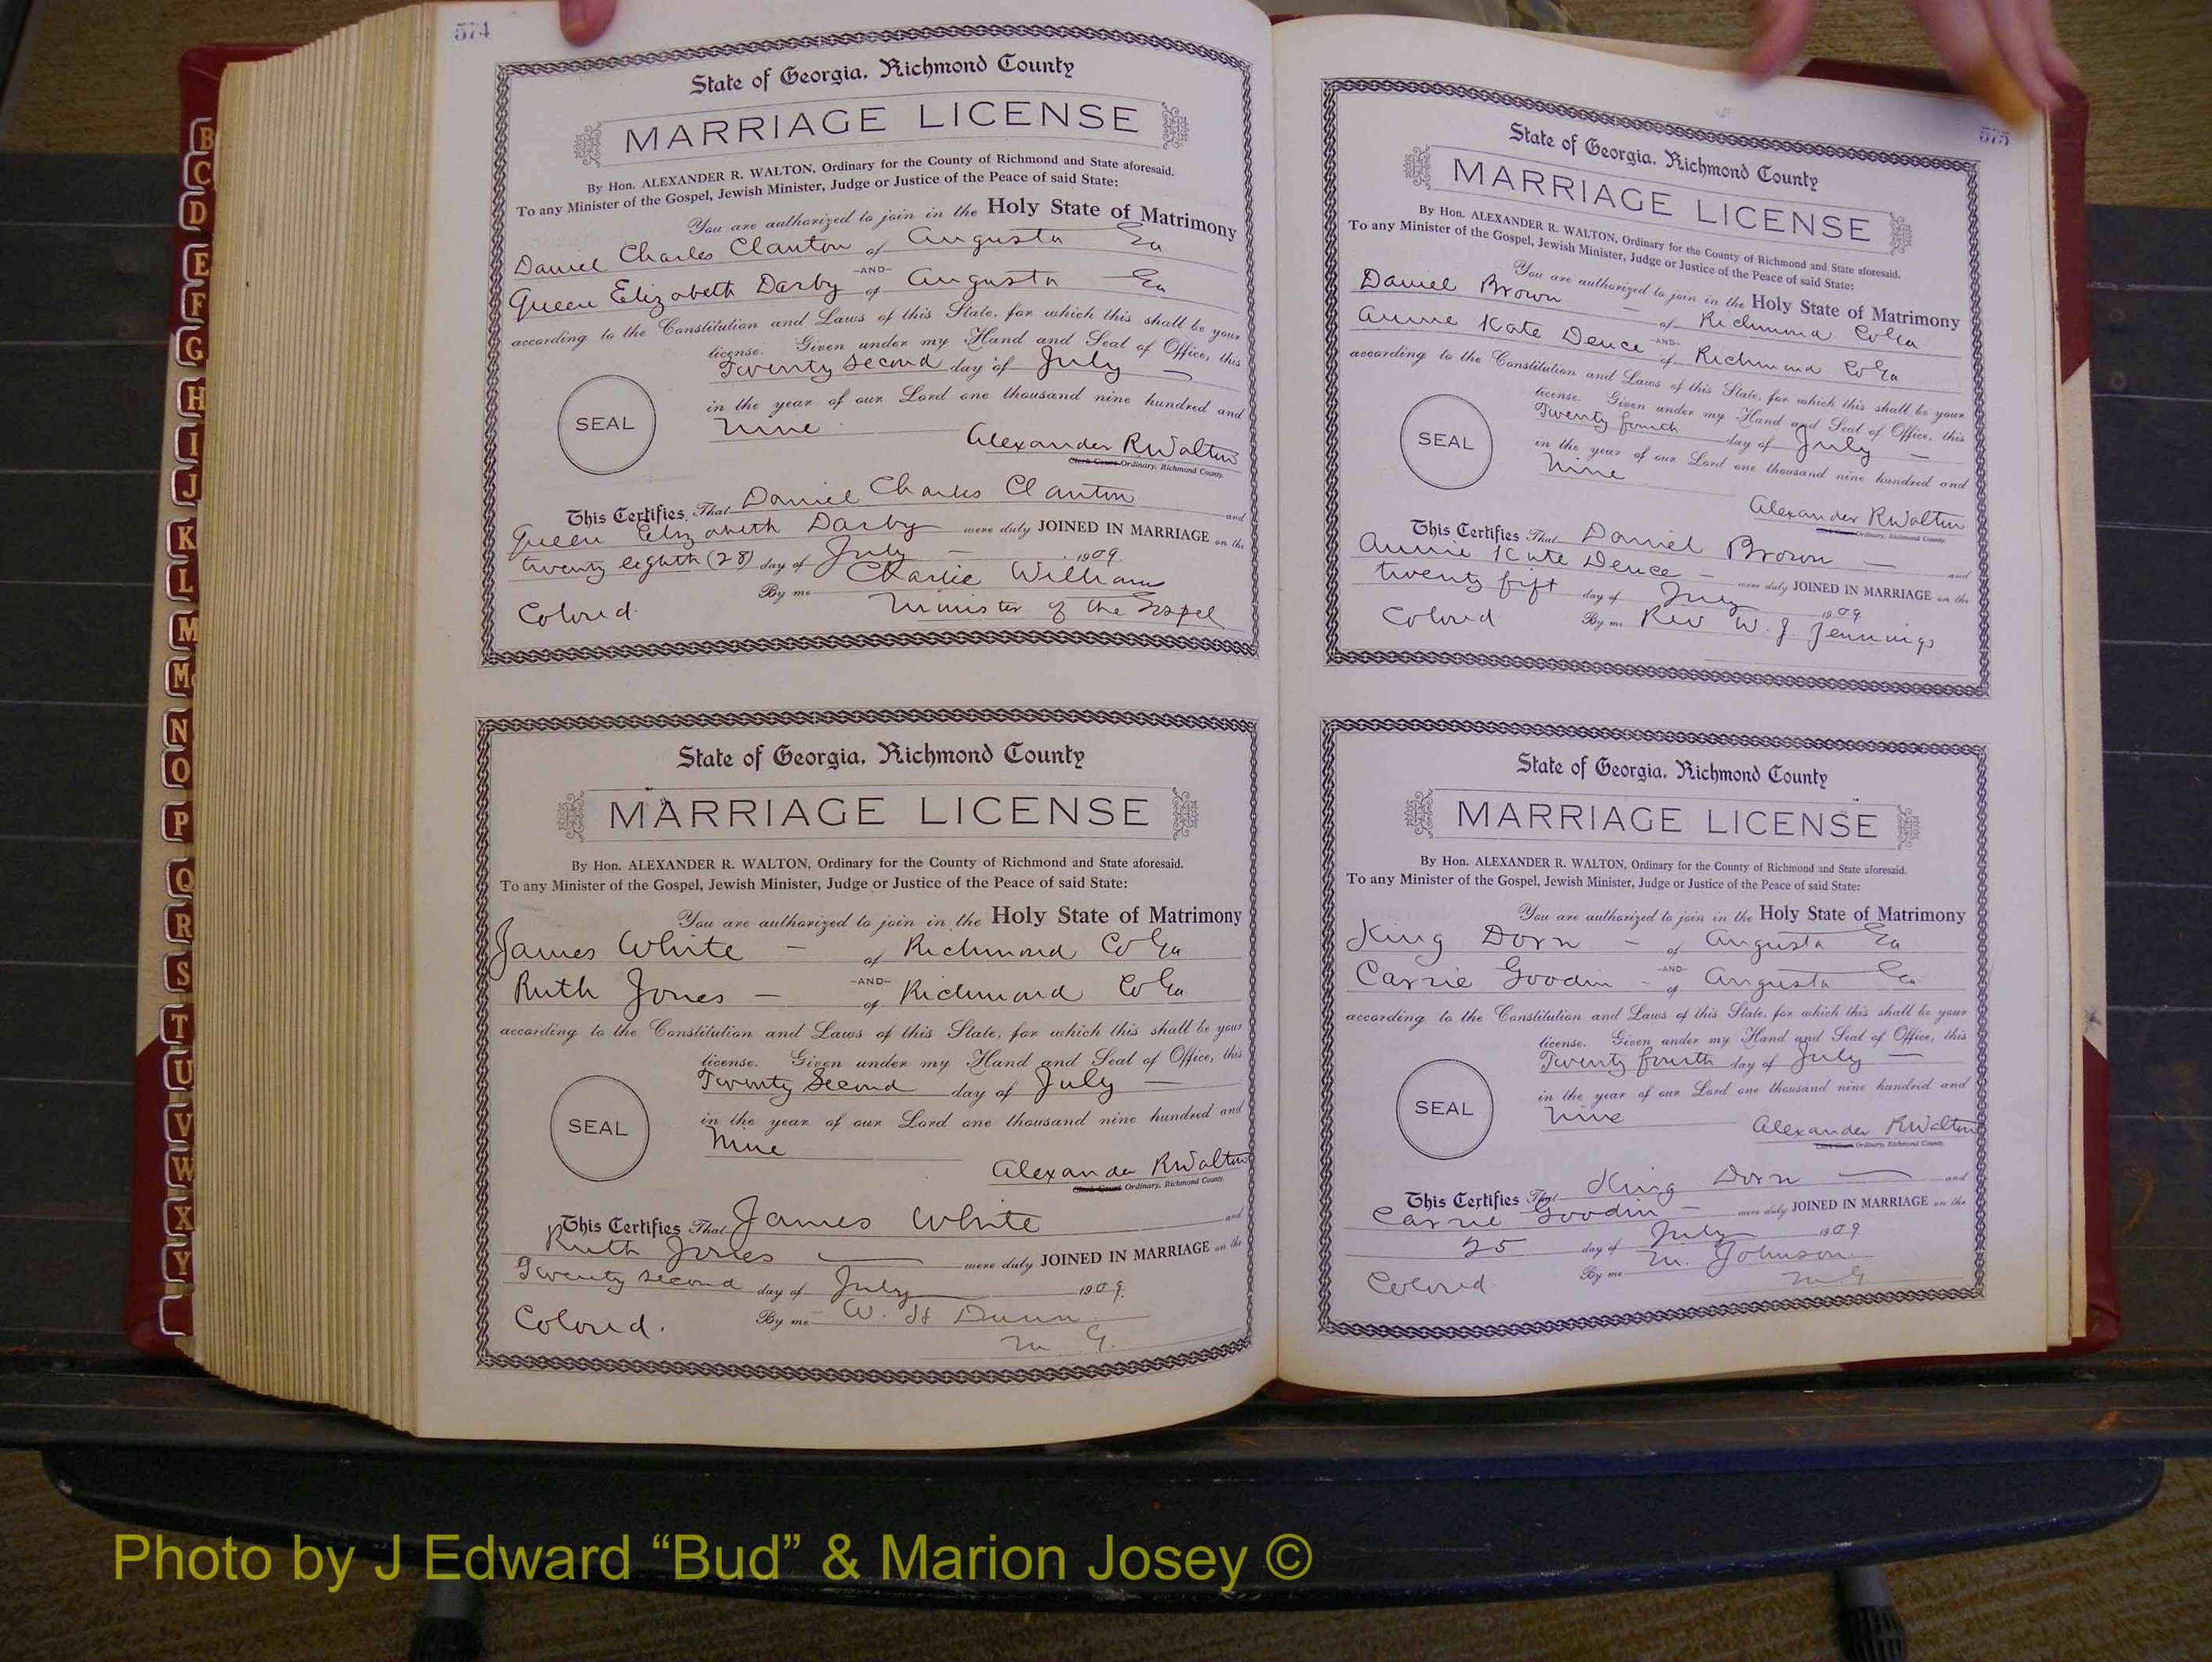 574
State of Georgia, Richmond County
MARRIAGE LICENSE
By Hon. ALEXANDER R. WALTON, Ordinary for the County of Richmond and State aforesaid.
To any Minister of the Gospel, Jewish Minister, Judge or Justice of the Peace of said State:
You are authorized to join in the Holy State of Matrimony
Daniel Charles Clanton of Augusta Ga
-AND-
Queen Elizabeth Darby of Augusta Ga
according to the Constitution and Laws of this State, for which this shall be your
license. Given under my Hand and Seal of Office, this
Twenty Second day of July
in the year of our Lord one thousand nine hundred and
nine
SEAL
Alexander R Walton
Clerk Court Ordinary, Richmond County.
This Certifies, That Daniel Charles Clanton and
Queen Elizabeth Darby were duly JOINED IN MARRIAGE on the
twenty eighth (28) day of July 1909.
By me Charlie Williams
Colored. Minister of the Gospel
State of Georgia, Richmond County
MARRIAGE LICENSE
By Hon. ALEXANDER R. WALTON, Ordinary for the County of Richmond and State aforesaid.
To any Minister of the Gospel, Jewish Minister, Judge or Justice of the Peace of said State:
You are authorized to join in the Holy State of Matrimony
James White - of Richmond Co Ga
-AND-
Ruth Jones - of Richmond Co Ga
according to the Constitution and Laws of this State, for which this shall be your
license. Given under my Hand and Seal of Office, this
Twenty Second day of July
in the year of our Lord one thousand nine hundred and
Nine
SEAL
Alexander R Walton
Clerk Court Ordinary, Richmond County.
This Certifies That James White and
Ruth Jones were duly JOINED IN MARRIAGE on the
Twenty second day of July 1909.
Colored. By me W. H Dunn
M. G.
575
State of Georgia, Richmond County
MARRIAGE LICENSE
By Hon. ALEXANDER R. WALTON, Ordinary for the County of Richmond and State aforesaid.
To any Minister of the Gospel, Jewish Minister, Judge or Justice of the Peace of said State:
You are authorized to join in the Holy State of Matrimony
Daniel Brown - of Richmond Co Ga
-AND-
Annie Kate Deuce of Richmond Co Ga
according to the Constitution and Laws of this State, for which this shall be your
license. Given under my Hand and Seal of Office, this
Twenty fourth day of July
in the year of our Lord one thousand nine hundred and
Nine
SEAL
Alexander R Walton
Ordinary, Richmond County.
This Certifies That Daniel Brown and
Annie Kate Deuce were duly JOINED IN MARRIAGE on the
twenty fift day of July 1909
Colored By me Rev W. J. Jennings
State of Georgia, Richmond County
MARRIAGE LICENSE
By Hon. ALEXANDER R. WALTON, Ordinary for the County of Richmond and State aforesaid.
To any Minister of the Gospel, Jewish Minister, Judge or Justice of the Peace of said State:
You are authorized to join in the Holy State of Matrimony
King Dorn - of Augusta Ga
-AND-
Carrie Goodin - of Augusta Ga
according to the Constitution and Laws of this State, for which this shall be your
license. Given under my Hand and Seal of Office, this
Twenty fourth day of July
in the year of our Lord one thousand nine hundred and
Nine
SEAL
Alexander R Walton
Ordinary, Richmond County.
This Certifies That King Dorn and
Carrie Goodin - were duly JOINED IN MARRIAGE on the
25 day of July 1909
Colored By me M. Johnson
M G
B
C
D
E
F
G
H
I
J
K
L
M
Mc
N
O
P
Q
R
S
T
U
V
W
X
Y
Photo by J Edward “Bud” & Marion Josey ©